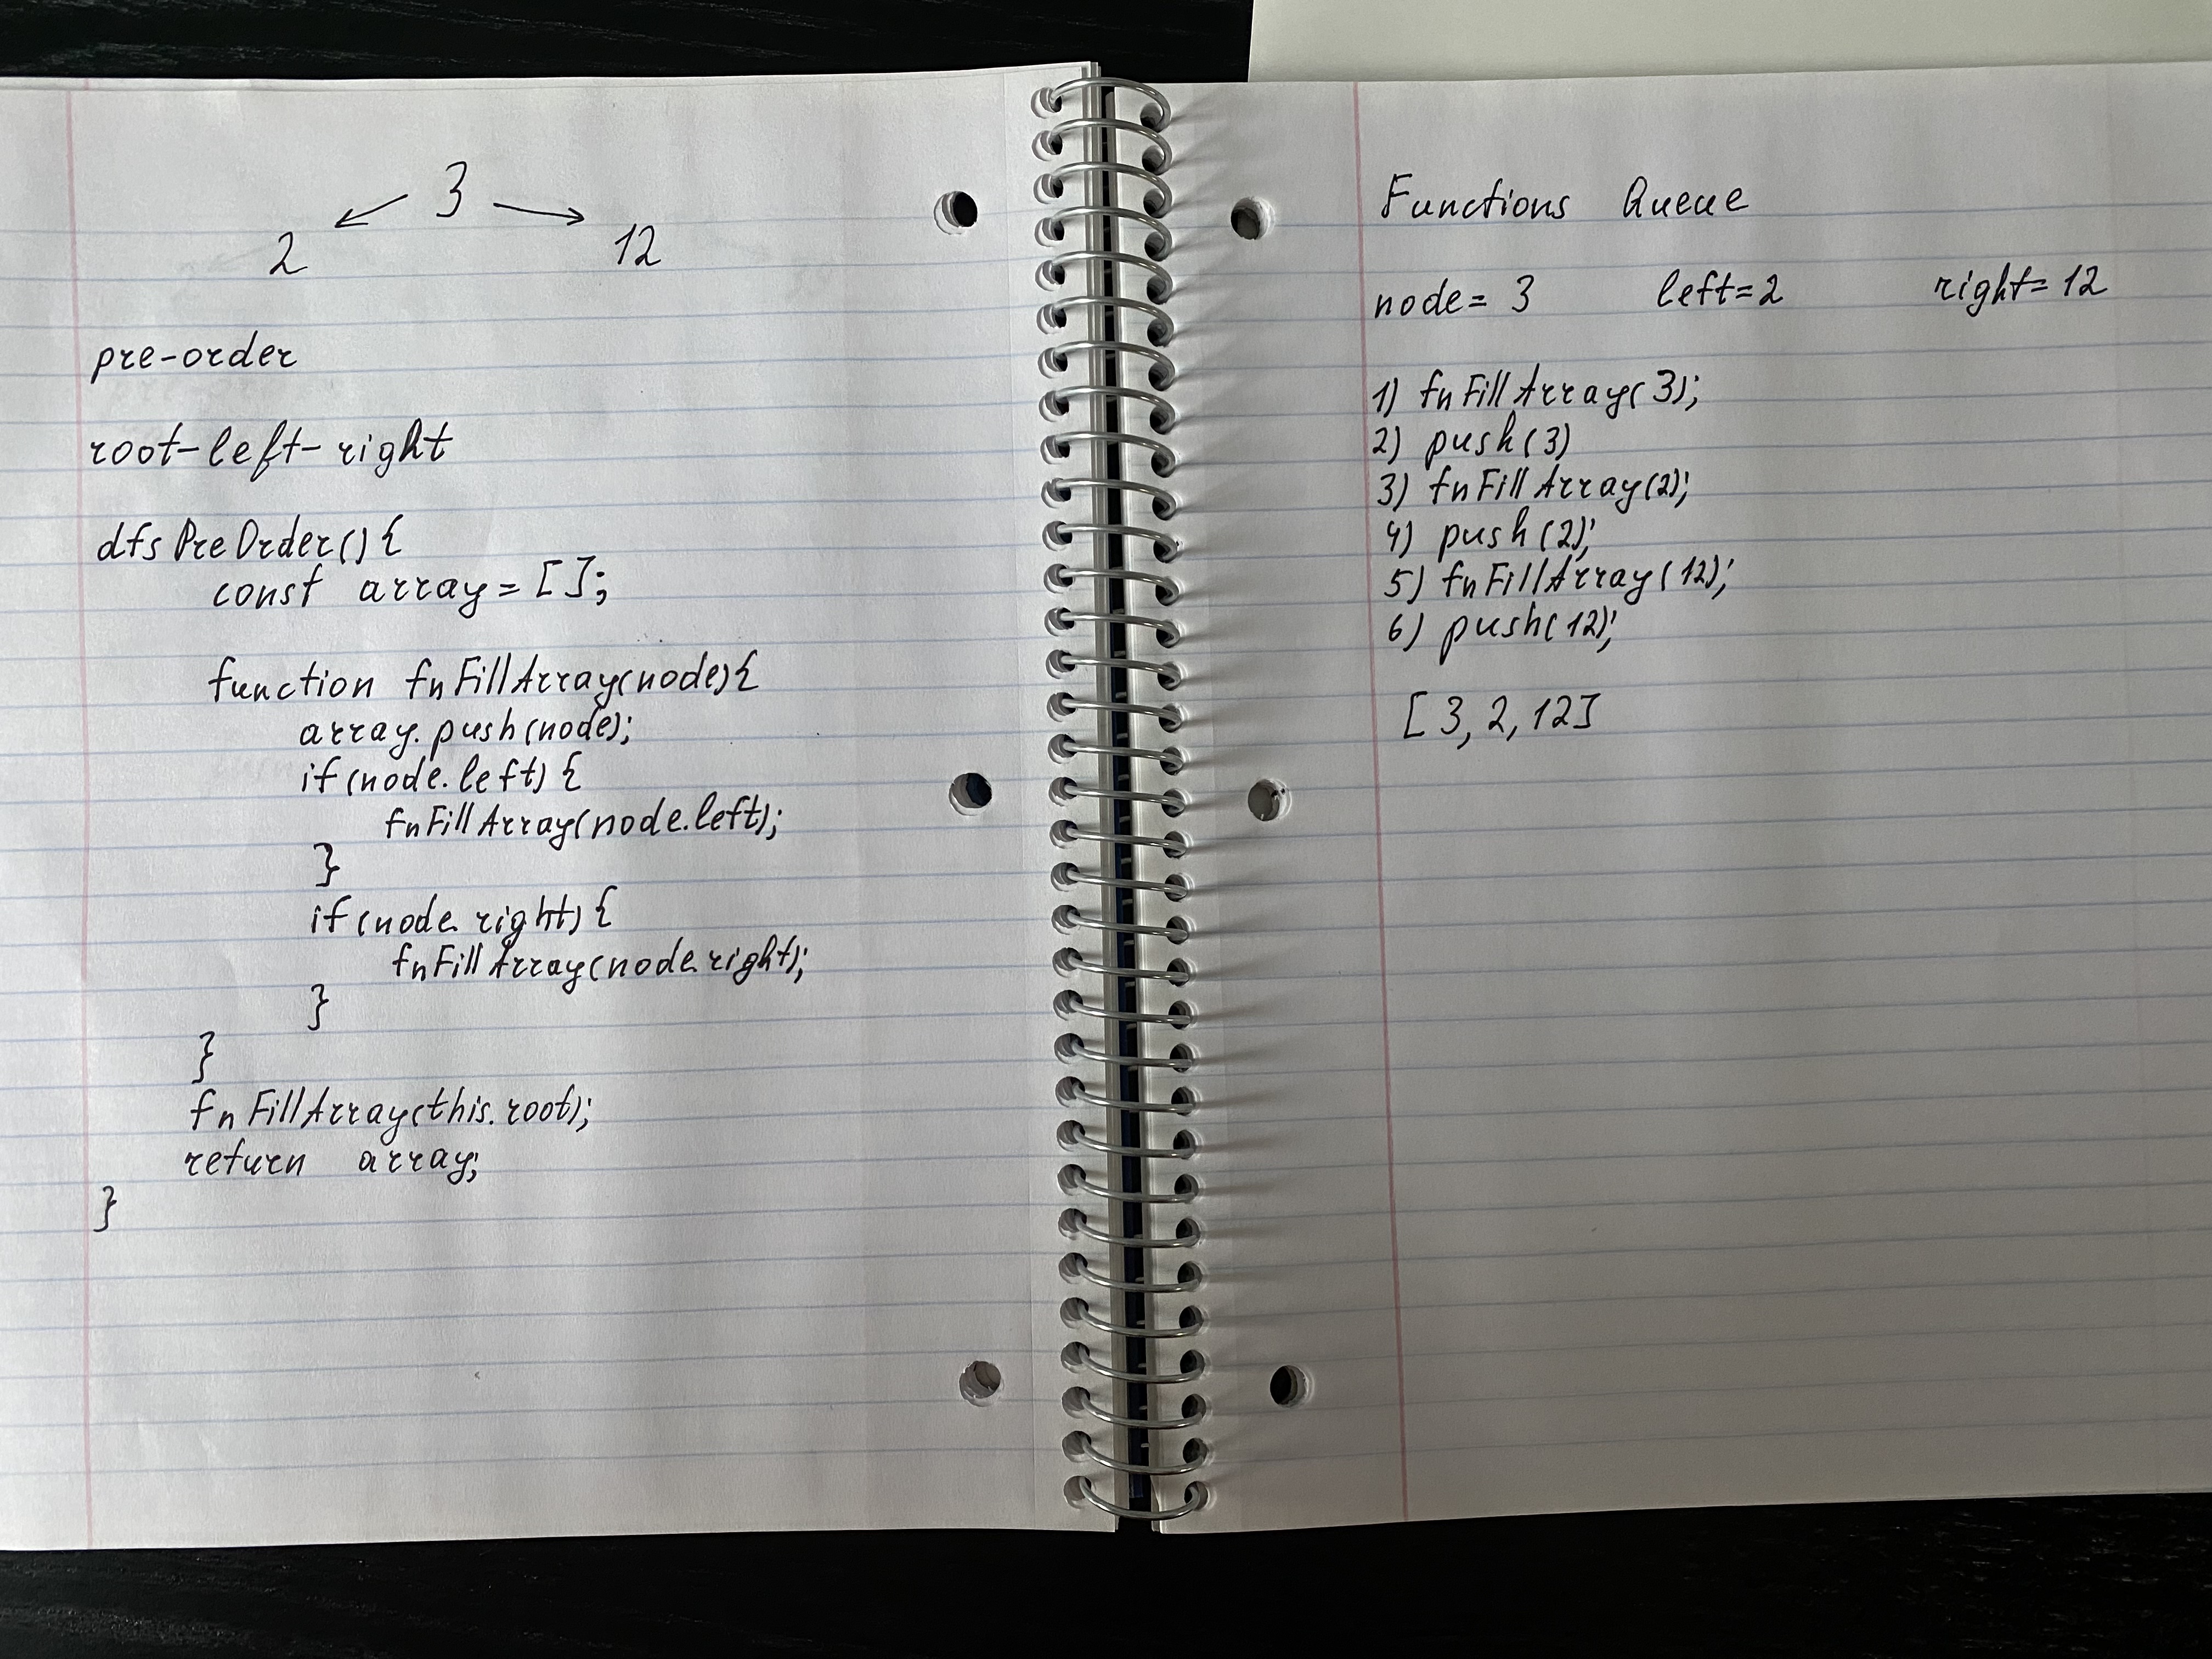 3
2 12
pre-order
root-left-right
dfsPreOrder(){
const array = [];
function fnFillArray(node){
array.push(node);
if(node.left){
fnFillArray(node.left);
}
if(node.right){
fnFillArray(node.right);
}
}
fnFillArray(this.root);
return array;
}
Functions Queue
node= 3 left=2 right=12
1) fnFillArray(3);
2) push(3)
3) fnFillArray(2);
4) push(2);
5) fnFillArray(12);
6) push(12);
[3, 2, 12]